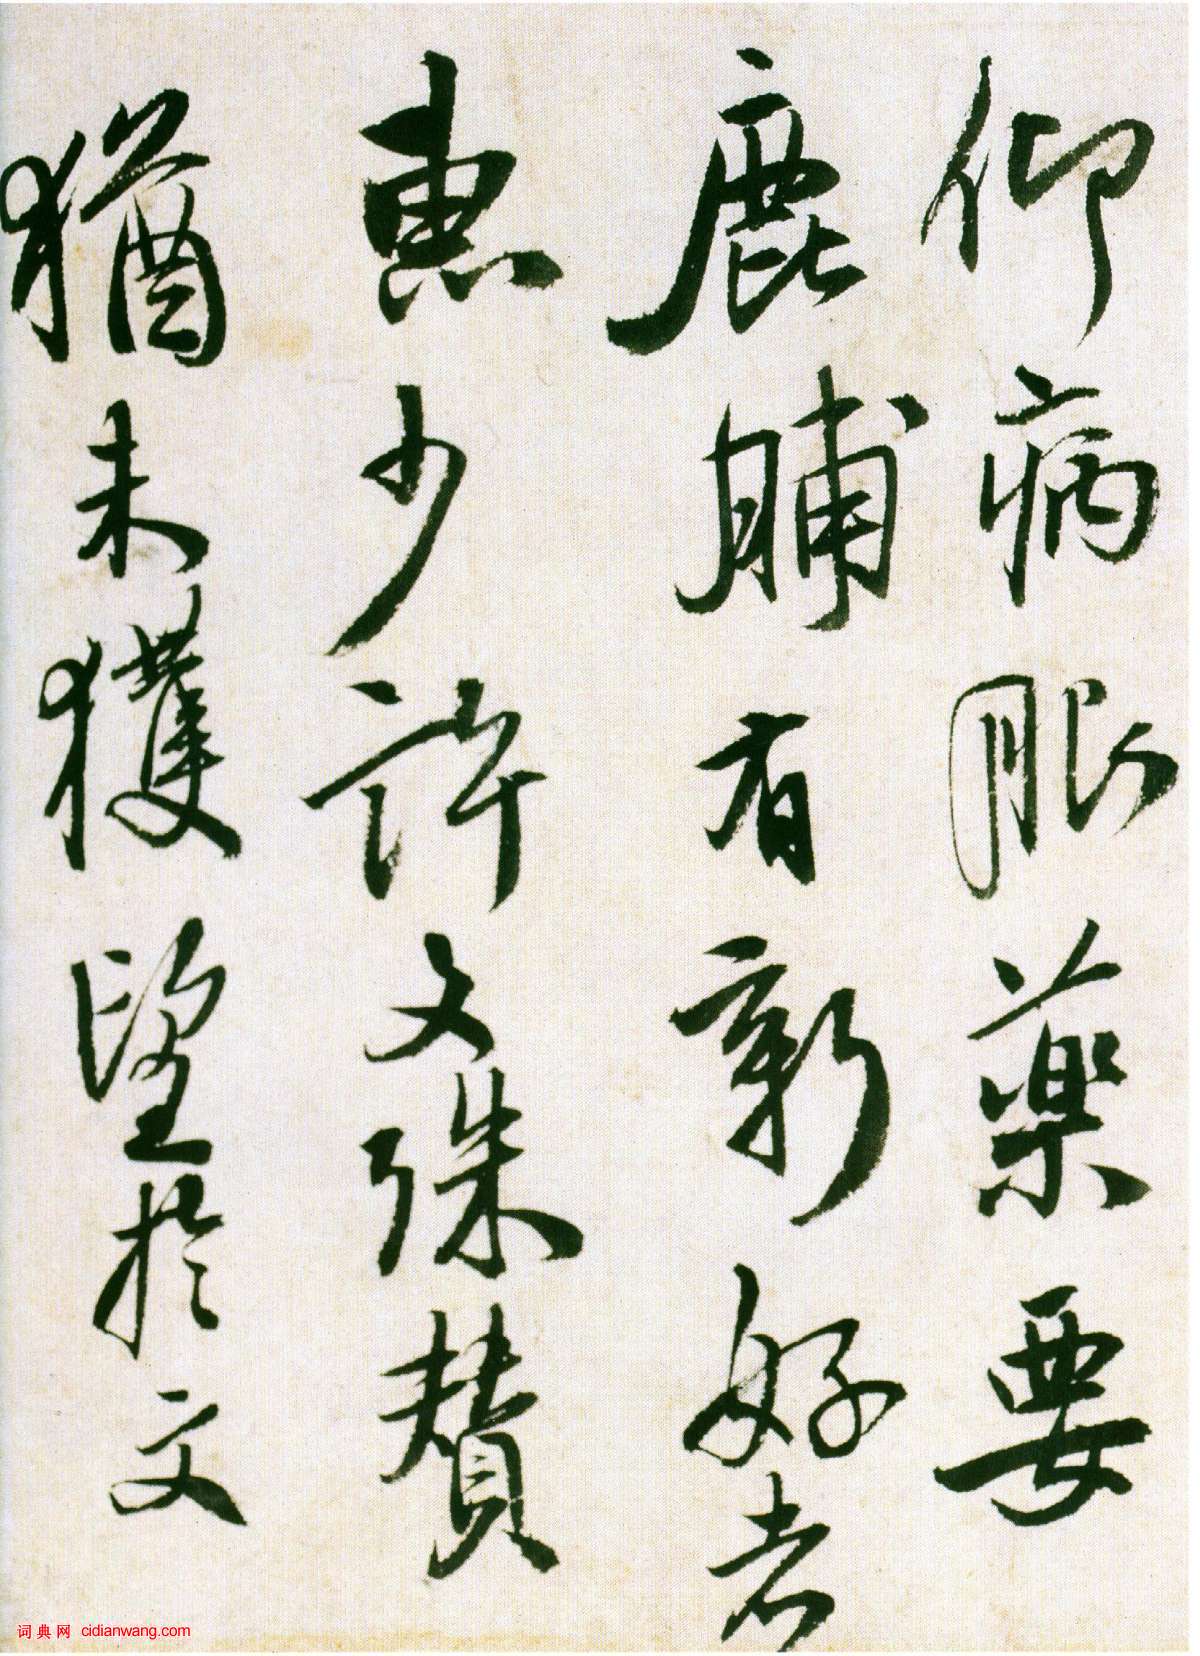 仰病服藥要
鹿脯有新好者
惠少許文殊贊
猶未獲望於文
词典网 cidianwang.com